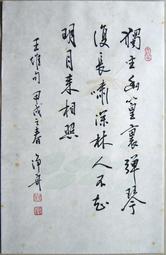 獨坐幽篁裏彈琴
復長嘯深林人不知
明月来相照
王維句甲戌之春